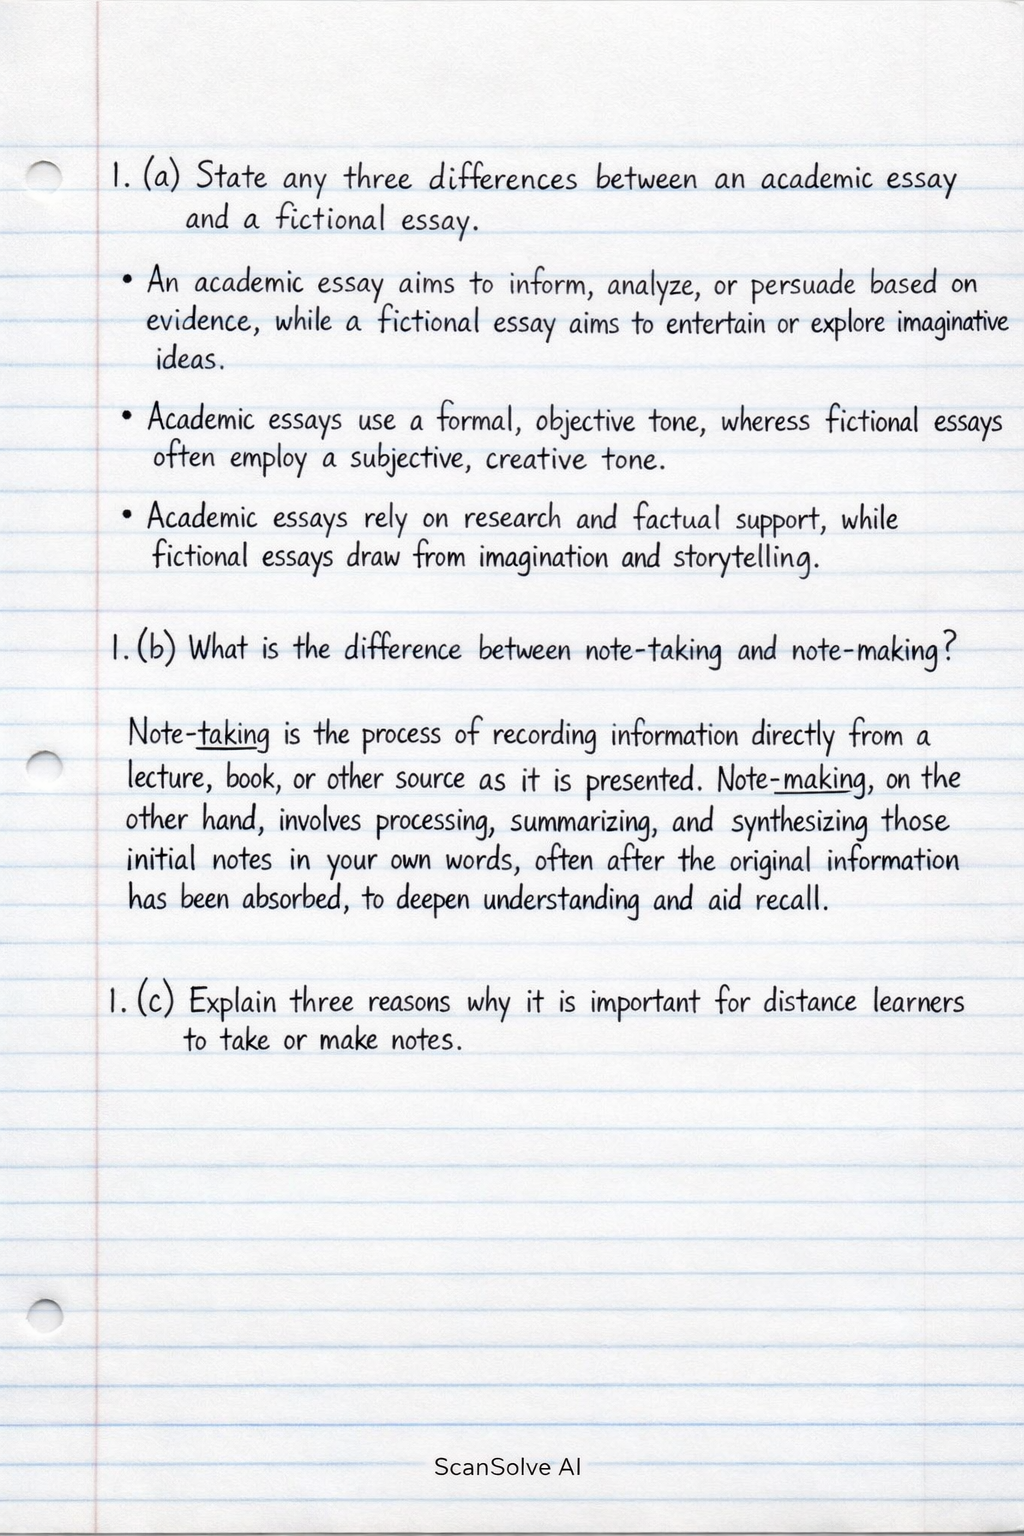 1. (a) State any three differences between an academic essay
and a fictional essay.
• An academic essay aims to inform, analyze, or persuade based on
evidence, while a fictional essay aims to entertain or explore imaginative
ideas.
• Academic essays use a formal, objective tone, wheress fictional essays
often employ a subjective, creative tone.
• Academic essays rely on research and factual support, while
fictional essays draw from imagination and storytelling.
1. (b) What is the difference between note-taking and note-making?
Note-taking is the process of recording information directly from a
lecture, book, or other source as it is presented. Note-making, on the
other hand, involves processing, summarizing, and synthesizing those
initial notes in your own words, often after the original information
has been absorbed, to deepen understanding and aid recall.
1. (c) Explain three reasons why it is important for distance learners
to take or make notes.
ScanSolve AI